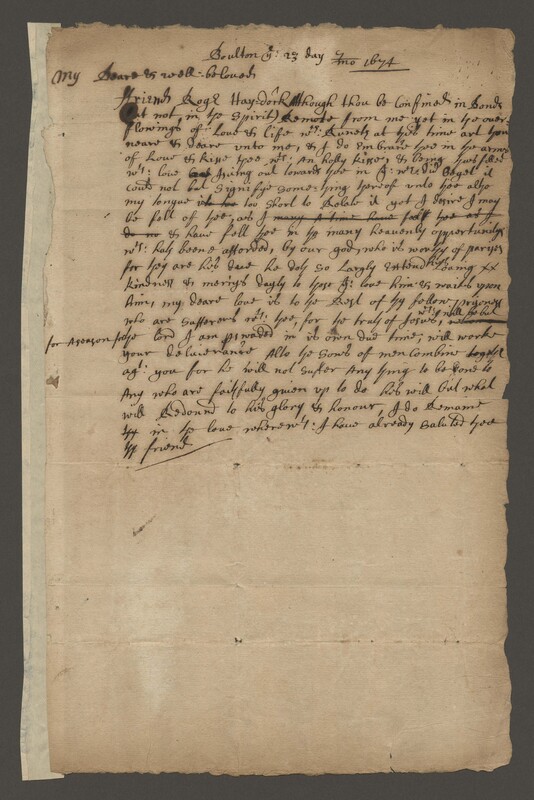 Boulton ye: 23 day 7/mo 1674
My Deare & well-beloved
ffriend Roger Haydock though thou be Confined in Bonds
(but not, in the Spirit) Remote from me yet in the over
flowings of ye: Love & life wch: Runeth at this time art thou
neare & deare unto me, & I do Embrace thee in the arms
of Love & kisse thee wth: an holy kisse, & being thus filled
wth: love giving out towards thee in
could not but Signifye some-thing thereof unto thee altho
my tongue is too Short to Relate it yet I desire I may
be fell of thee, as I many a time have felt thee as I
do no & have fell thee in the many heavenly opportunitys
wch: hath beene afforded, by our god, who is worthy of
for they are his due he doth so Largly Extend his
kindness & mercys dayly to those yt: love him & waits upon
him, my deare love is to the Rest of thy fellow prisoners
who are Sufferers wth: thee, for the truth of Jesus,
for a season the lord I am in its own due time, will worke
your deliverance Altho the Sons of men combine together
agt: you for he will not Suffer Any thing to be done to
Any who are faithfully given up to do his will but what
will Redound to his glory & honour, I do Remaine
thy in the love wherewth: I have already Saluted thee
thy friend